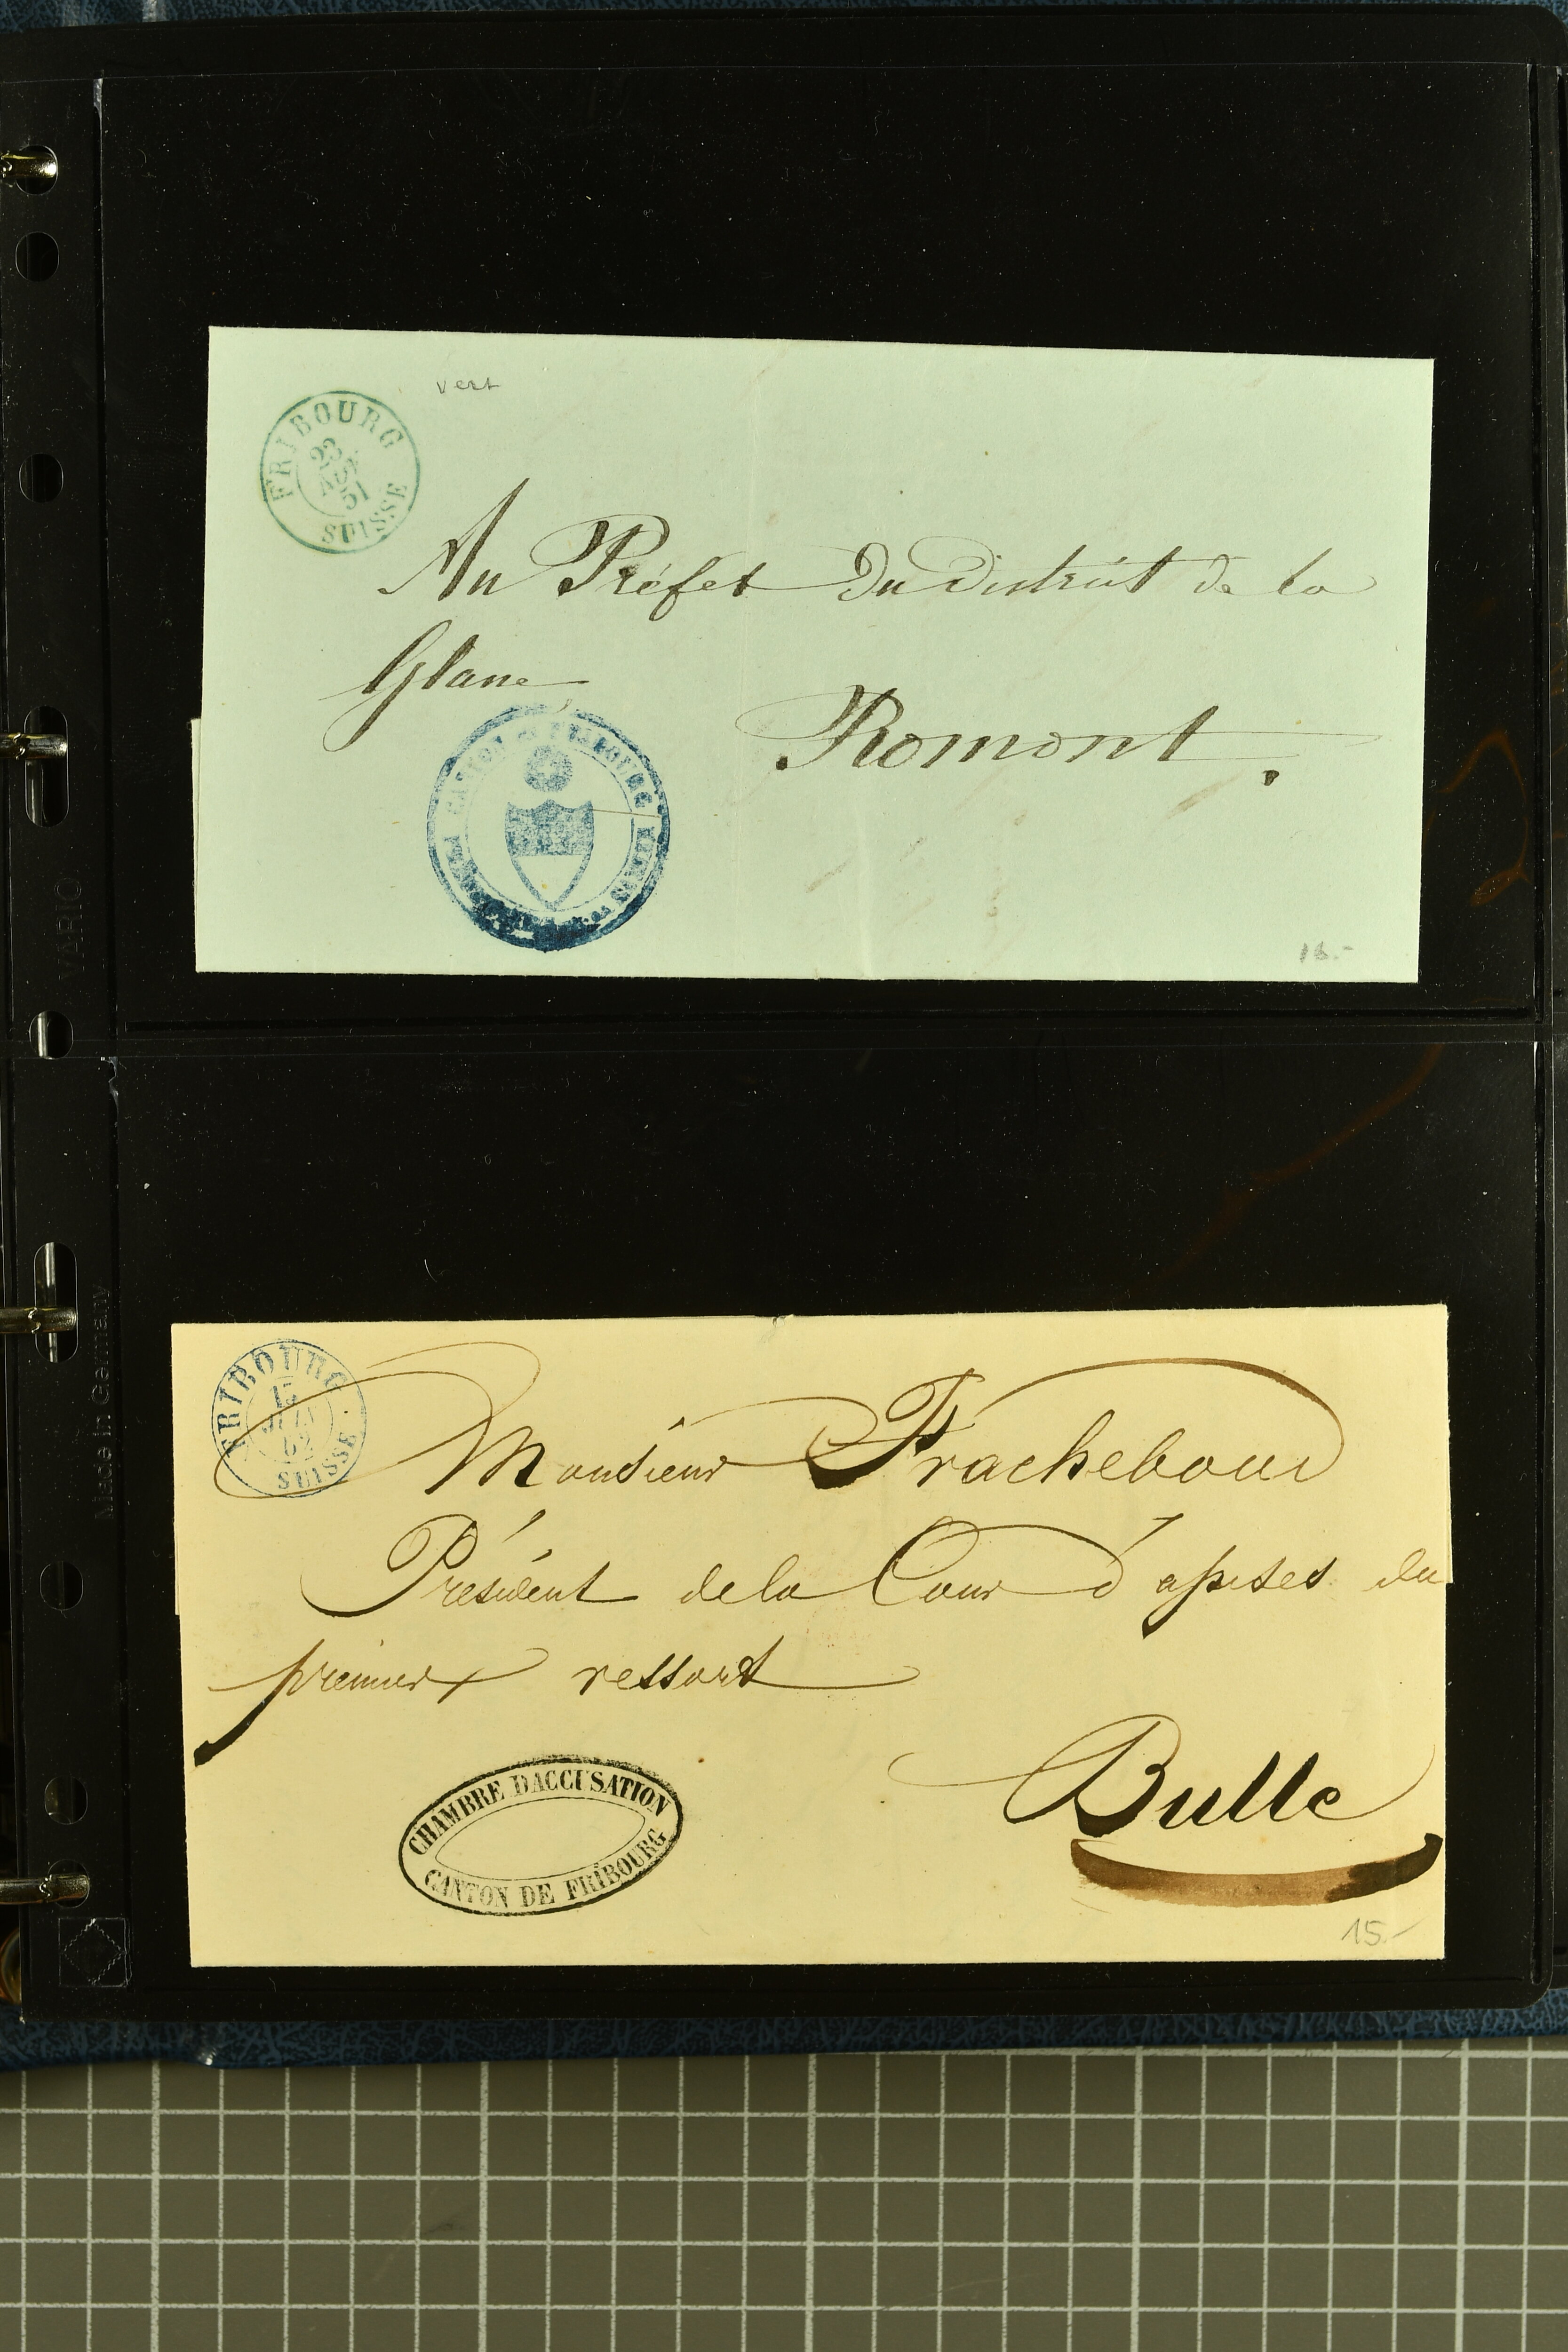 vert
FRIBOURG
23
51
SUISSE
Au Préfet du District de la
Glane
Romont.
CANTON DE FRIBOURG
VARIO
FRIBOURG
15
JUIN
52
SUISSE
Monsieur Frachebour
Président de la Cour d'apises du
premier ressort
Bulle
CHAMBRE D'ACCUSATION
CANTON DE FRIBOURG
15.-
Made in Germany